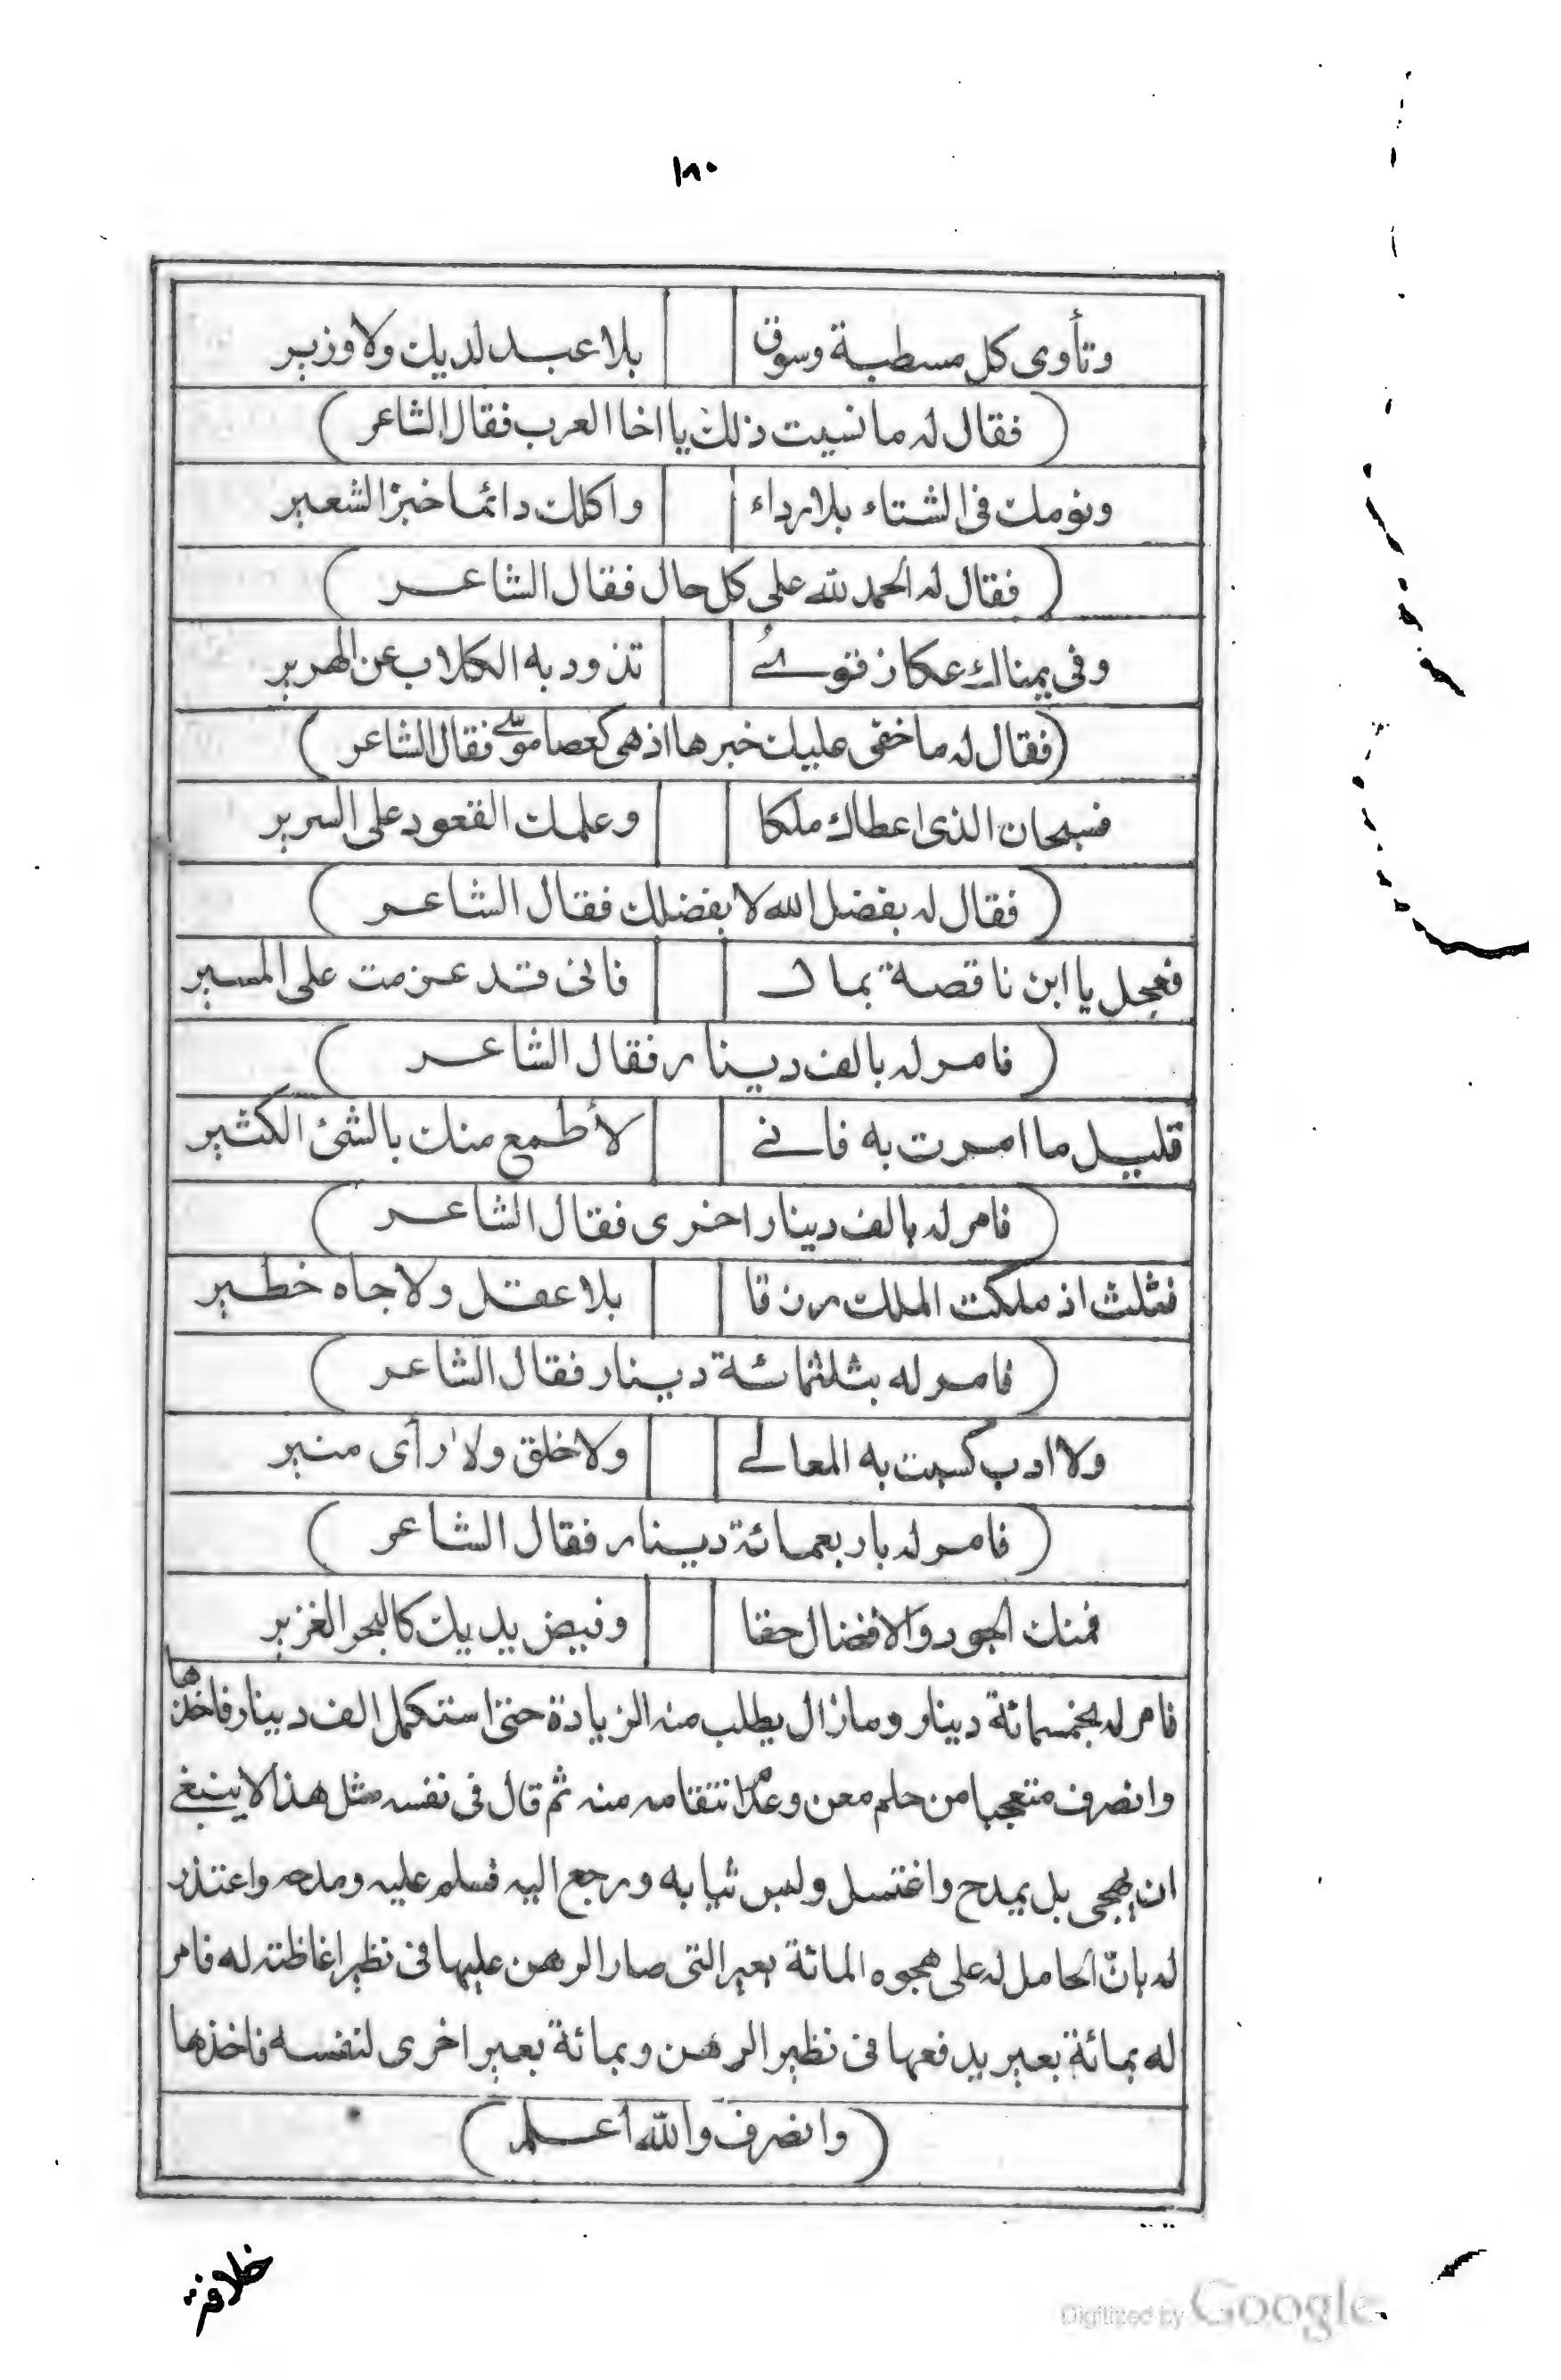 ١٨٠
وتأوى كل مسطبة وسوق بلا عبد لديك ولا وزير
(فقال له ما نسيت ذلك يا اخا العرب فقال الشاعر)
ونومك فى الشتاء بلا رداء واكلك دائما خبز الشعير
(فقال له الحمد لله على كل حال فقال الشاعر)
وفى يمناك عكاز قوىُ تذود به الكلاب عن الهرير
(فقال له ما خفى عليك خبرها اذ هى كعصا موسى فقال الشاعر)
فسبحان الذى اعطاك ملكا وعلمك القعود على السرير
(فقال له بفضل الله لا بفضلك فقال الشاعر)
فعجل يا ابن ناقصة بمال فانى قد عزمت على المسير
(فامر له بالف دينار فقال الشاعر)
قليل ما امرت به فانى لأطمع منك بالشئ الكثير
(فامر له بالف دينار اخرى فقال الشاعر)
فثلث اذ ملكت الملك رزقا بلا عقل ولا جاه خطير
(فامر له بثلثمائة دينار فقال الشاعر)
ولا ادب كسبت به المعالى ولا خلق ولا رأى منير
(فامر له باربعمائة دينار فقال الشاعر)
فمنك الجود والافضال حقا وفيض يديك كالبحر الغزير
فامر له بخمسمائة دينار وما زال يطلب منه الزيادة حتى استكمل الف دينار فاخذها
وانصرف متعجبا من حلم معن وعدم انتقامه منه ثم قال فى نفسه مثل هذا لا ينبغى
ان يهجى بل يمدح واغتسل ولبس ثيابه ورجع اليه فسلم عليه ومدحه واعتذر
له بانّ الحامل له على هجوه المائة بعير التى صار الرهن عليها فى نظير اغاظته له فامر
له بمائة بعير يدفعها فى نظير الرهن وبمائة بعير اخرى لنفسه فاخذها
(وانصرف والله اعلم)
خلافة
Digitized by Google